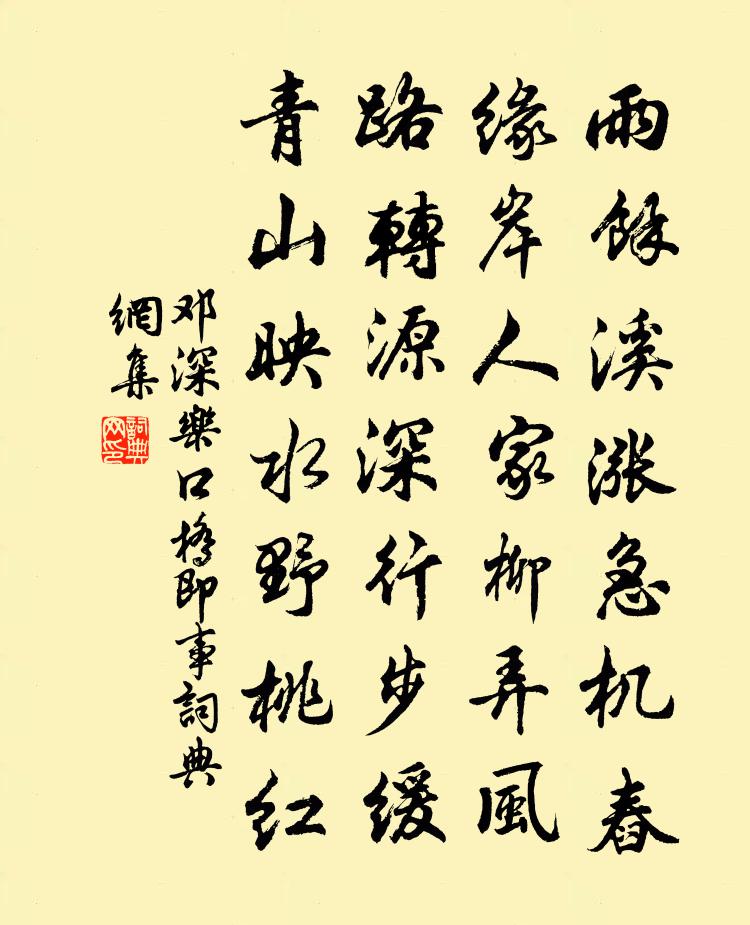 雨餘溪漲急机舂
緣岸人家柳弄風
路轉源深行步緩
青山映水野桃紅
邓深樂口橋即事詞典
網集
詞典
网印